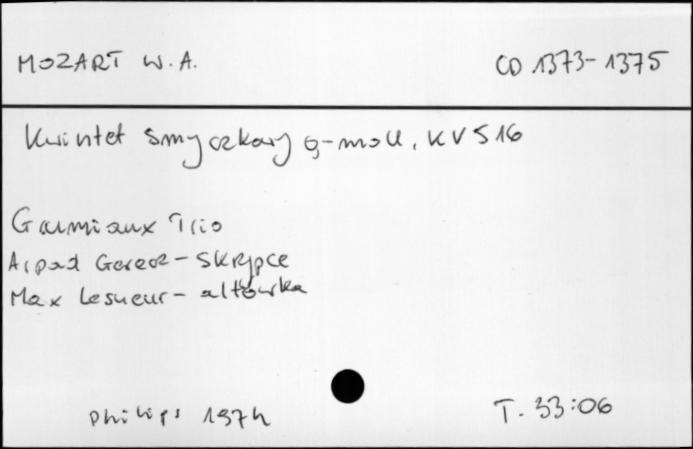 MOZART W.A.
CD 1373-1375
Kwintet smyczkowy g-moll, KV 516
Grumiaux Trio
Arpad Gerecz - skrzypce
Max Lesueur - altówka
Philips 1974
T. 33:06